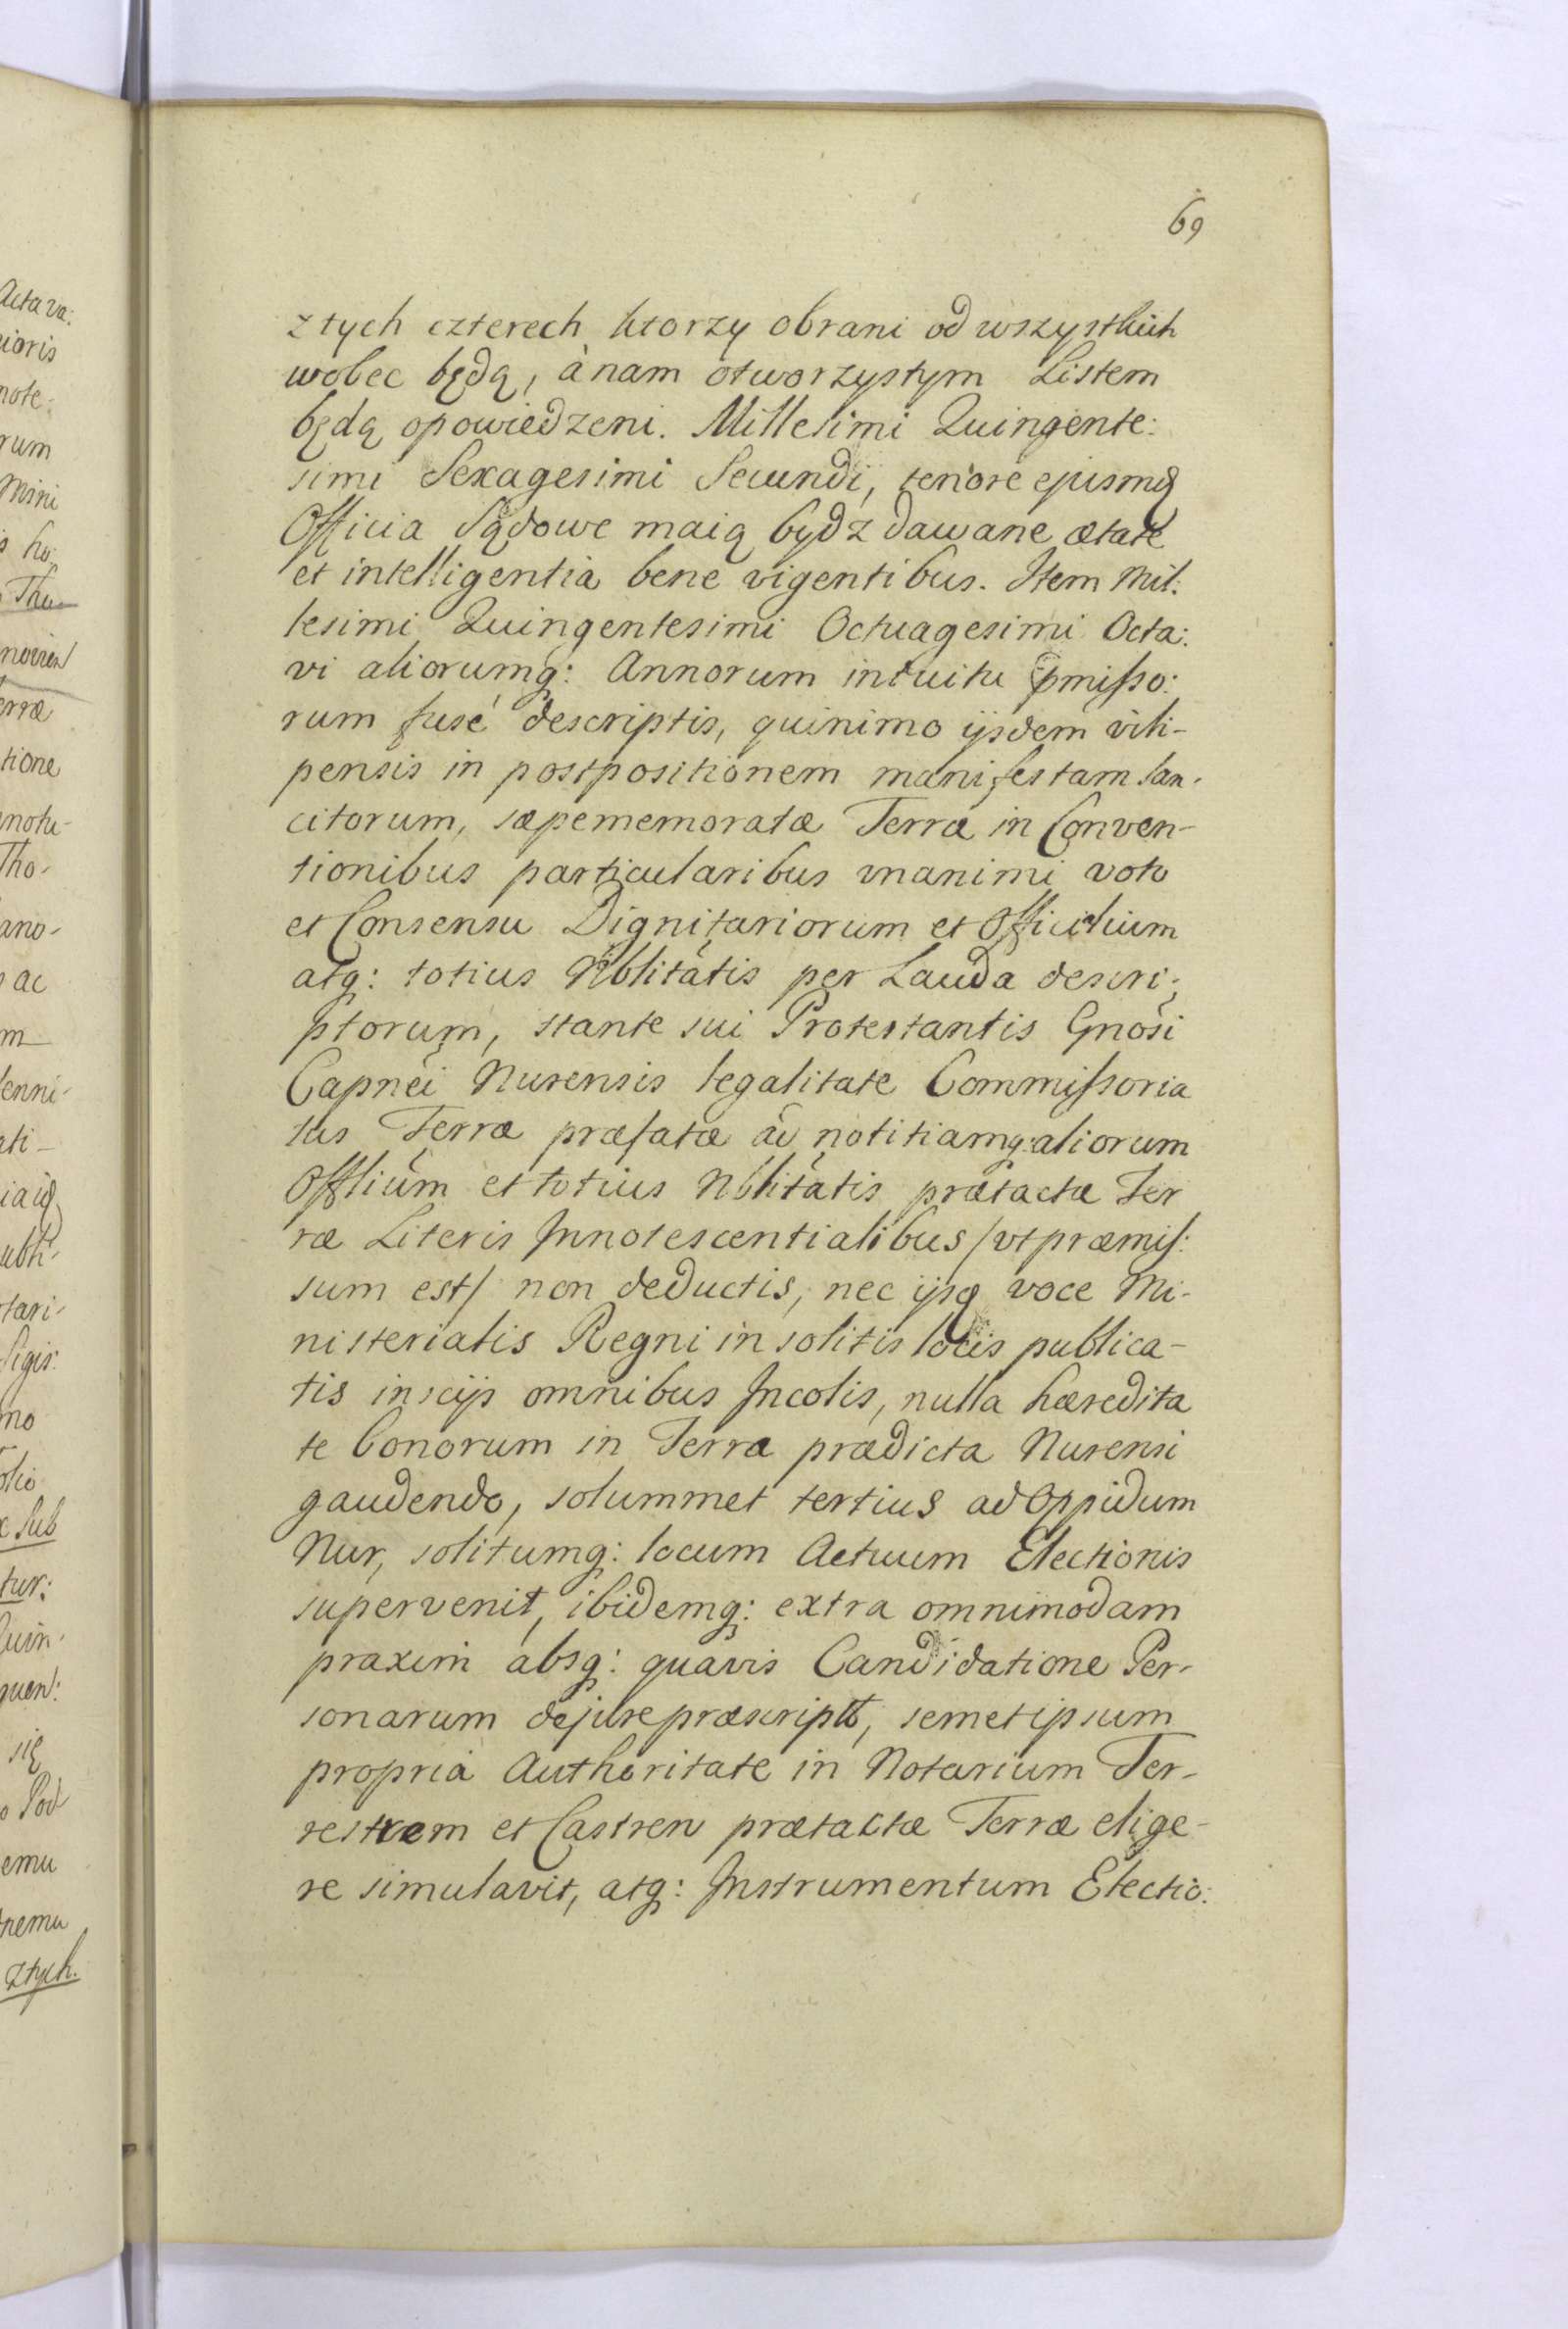 69
z tych czterech ktorzy obrani od wszystkich
wobec będą, à nam otworzystym Listem
będą opowiedzeni. Millesimi Quingente:
simi Sexagesimi Secundi, tenore ejusmq
Officia Sądowe maią bydz dawane ætate
et intelligentia bene vigentibus. Item Mil:
lesimi Quingentesimi Octuagesimi Octa:
vi aliorumq: Annorum intuitu pmisso:
rum fusé descriptis, quinimo ijsdem vili-
pensis in postpositionem manifestam San-
citorum, sæpememoratæ Terræ in Conven-
tionibus particularibus unanimi voto
et Consensu Dignitariorum et Officialium
atq: totius Nblitatis per Lauda descri:
ptorum, stante sui Protestantis Gnosi
Capnei Nurensis legalitate Commissoria
lus Terræ præfatæ ad notitiamq: aliorum
Offlium et totius Nblitatis prætactæ Ter
ræ Literis Innotescentialibus /vt præmis:
sum est/ non deductis, nec ijsq voce Mi-
nisterialis Regni in solitis locis publica-
tis inscijs omnibus Incolis, nulla hæredita
te bonorum in Terra prædicta Nurensi
gaudendo, solummet tertius ad Oppidum
Nur, solitumq: locum Actuum Electionis
supervenit, ibidemq: extra omnimodam
praxim absq: quavis Candidatione Per-
sonarum de jure præscripto, semetipsum
propria Authoritate in Notarium Ter-
restrem et Castren prætactæ Terræ elige-
re simulavit, atq: Instrumentum Electio: